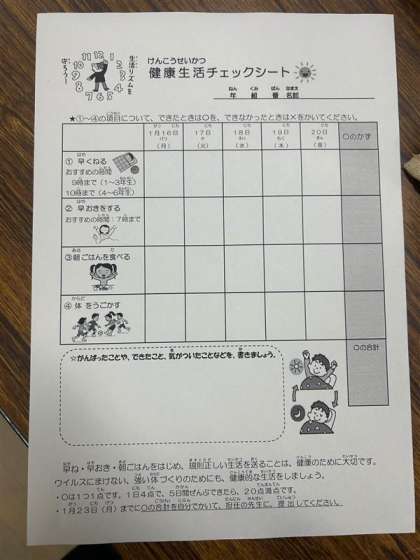 生活リズムを
ばっちり！
11 12 1
10 2
9 3
8 4
7 6 5
けんこうせいかつ
健康生活チェックシート
ねん くみ ばん なまえ
年 組 番 名前
★①～④の項目について、できたときは○を、できなかったときは×をかいてください。
1月16日 17日 18日 19日 20日 ○のかず
（月） （火） （水） （木） （金）
① 早くねる
おすすめの時間
9時まで（1～3年生）
10時まで（4～6年生）
② 早おきをする
おすすめの時間：7時まで
③朝ごはんを食べる
④ 体をうごかす
☆がんばったことや、できたこと、気がついたことなどを、書きましょう。
○の合計
早ね・早おき・朝ごはんをはじめ、規則正しい生活を送ることは、健康のために大切です。
ウイルスにまけない、強い体づくりのためにも、健康的な生活をしましょう。
・○は1つ1点です。1日4点で、5日間ぜんぶできたら、20点満点です。
・1月23日（月）までに○の合計を自分でかいて、担任の先生に、提出してください。